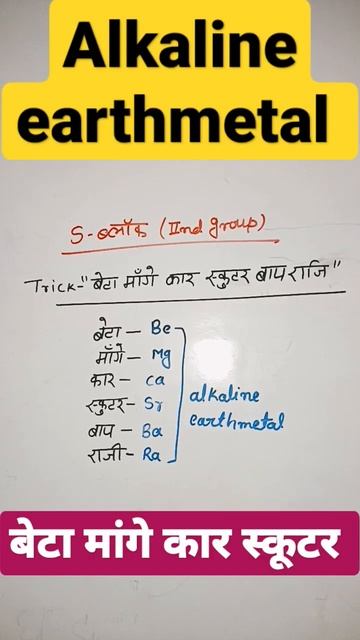 Alkaline
earthmetal
S-ब्लॉक (IInd group)
Trick-"बेटा माँगे कार स्कुटर बाप राजि"
बेटा - Be
माँगे - Mg
कार - ca
स्कुटर - Sr
बाप - Ba
राजी - Ra
alkaline
earthmetal
बेटा मांगे कार स्कूटर